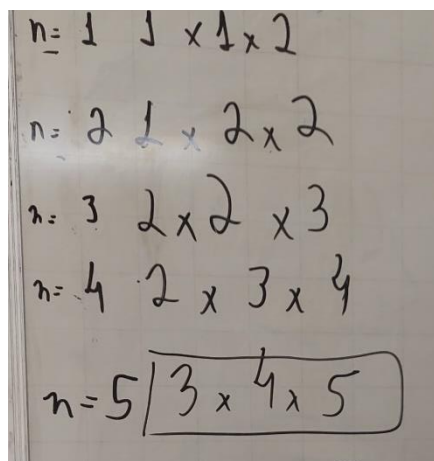 n= 1 1 x 1 x 2
n= 2 1 x 2 x 2
n= 3 2 x 2 x 3
n= 4 2 x 3 x 4
n = 5 3 x 4 x 5